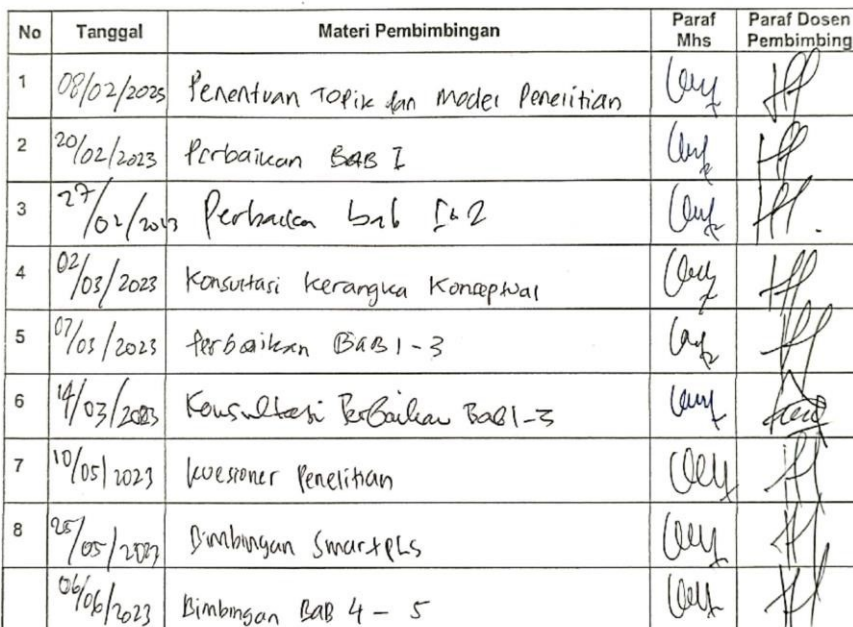 No Tanggal Materi Pembimbingan Paraf Mhs Paraf Dosen Pembimbing
1 08/02/2023 Penentuan Topik dan Model Penelitian
2 20/02/2023 Perbaikan BAB I
3 27/02/2023 Perbaikan bab I & 2
4 02/03/2023 Konsultasi Kerangka Konseptual
5 07/03/2023 Perbaikan BAB 1-3
6 14/03/2023 Konsultasi Perbaikan Bab 1-3
7 10/05/2023 Kuesioner Penelitian
8 25/05/2023 Bimbingan SmartPLS
06/06/2023 Bimbingan BAB 4 - 5